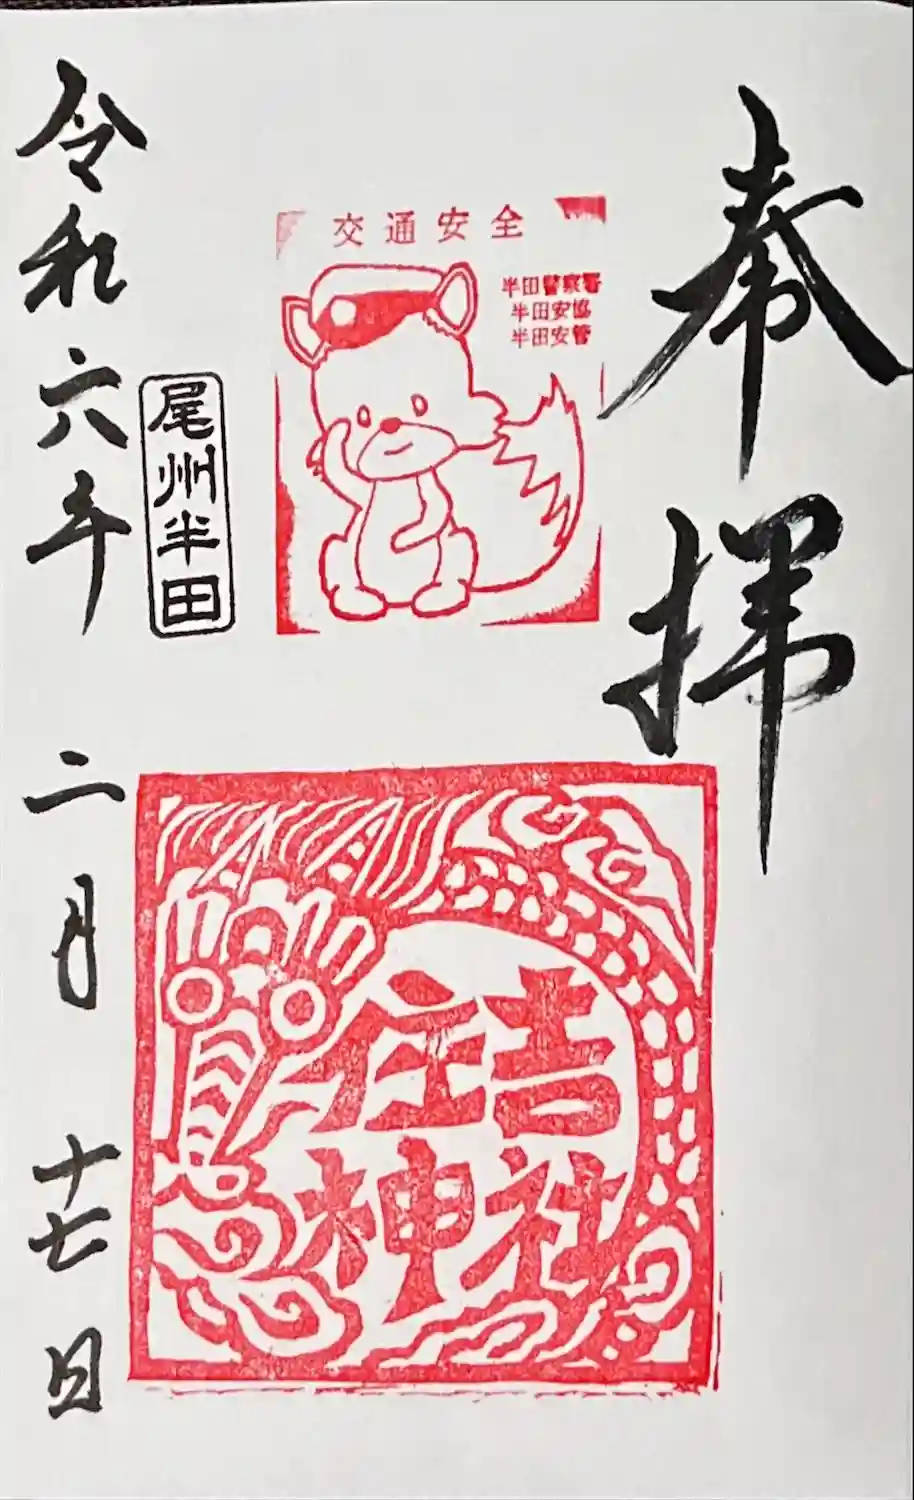 奉拝
交通安全
半田警察署
半田安協
半田安管
住吉
神社
尾州半田
令和六年 二月 十七日